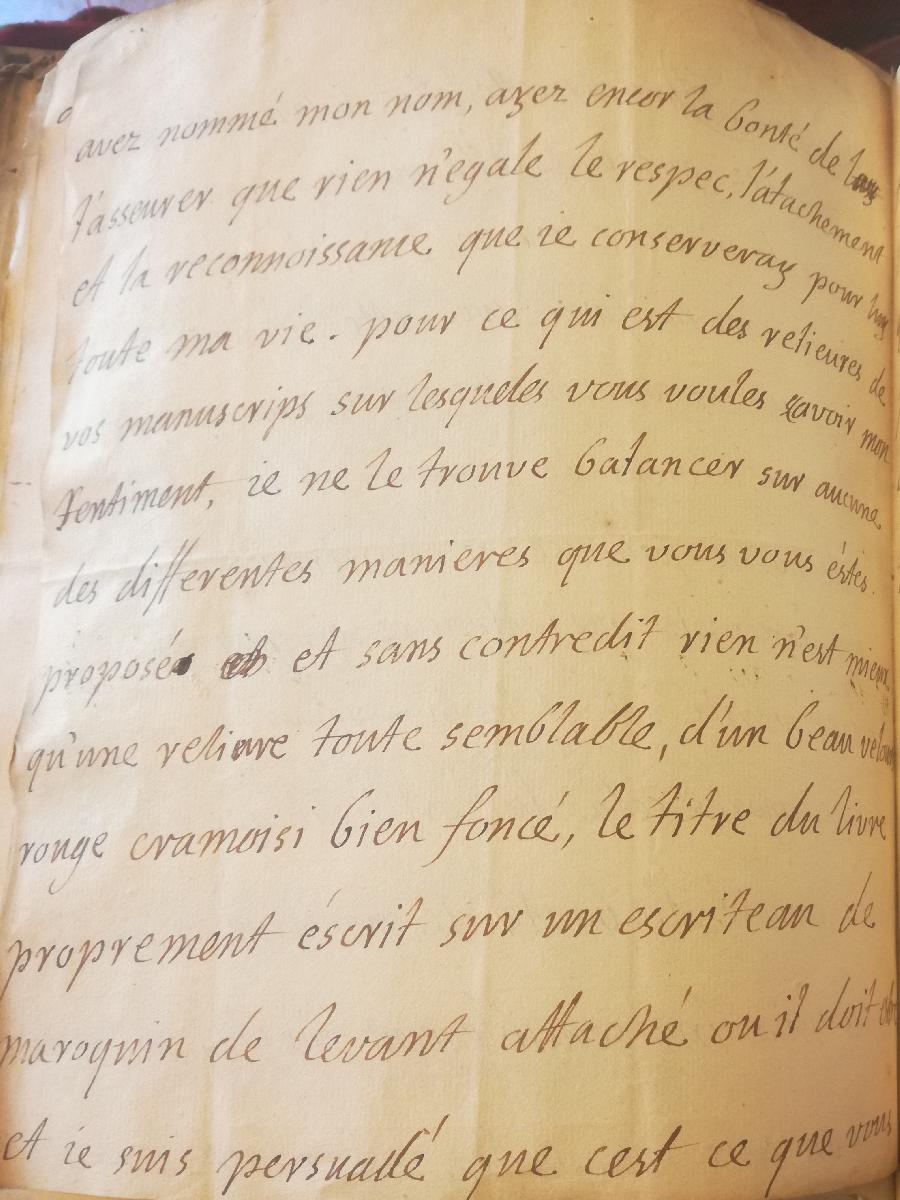 avez nommé mon nom, ayez encor la bonté de
l'asseurer que rien n'egale le respec, l'atachement
et la reconnoissance que ie conserveray pour luy
toute ma vie. pour ce qui est des relieures de
vos manuscrips sur lesqueles vous voules sçavoir mon
sentiment, ie ne le trouve balancer sur aucune
des differentes manieres que vous vous éstes
proposés et sans contredit rien n'est mieux
qu'une reliure toute semblable, d'un beau velours
rouge cramoisi bien foncé, le titre du livre
proprement éscrit sur un escriteau de
maroquin de levant attaché ou il doit
et ie suis persuadé que cest ce que vous